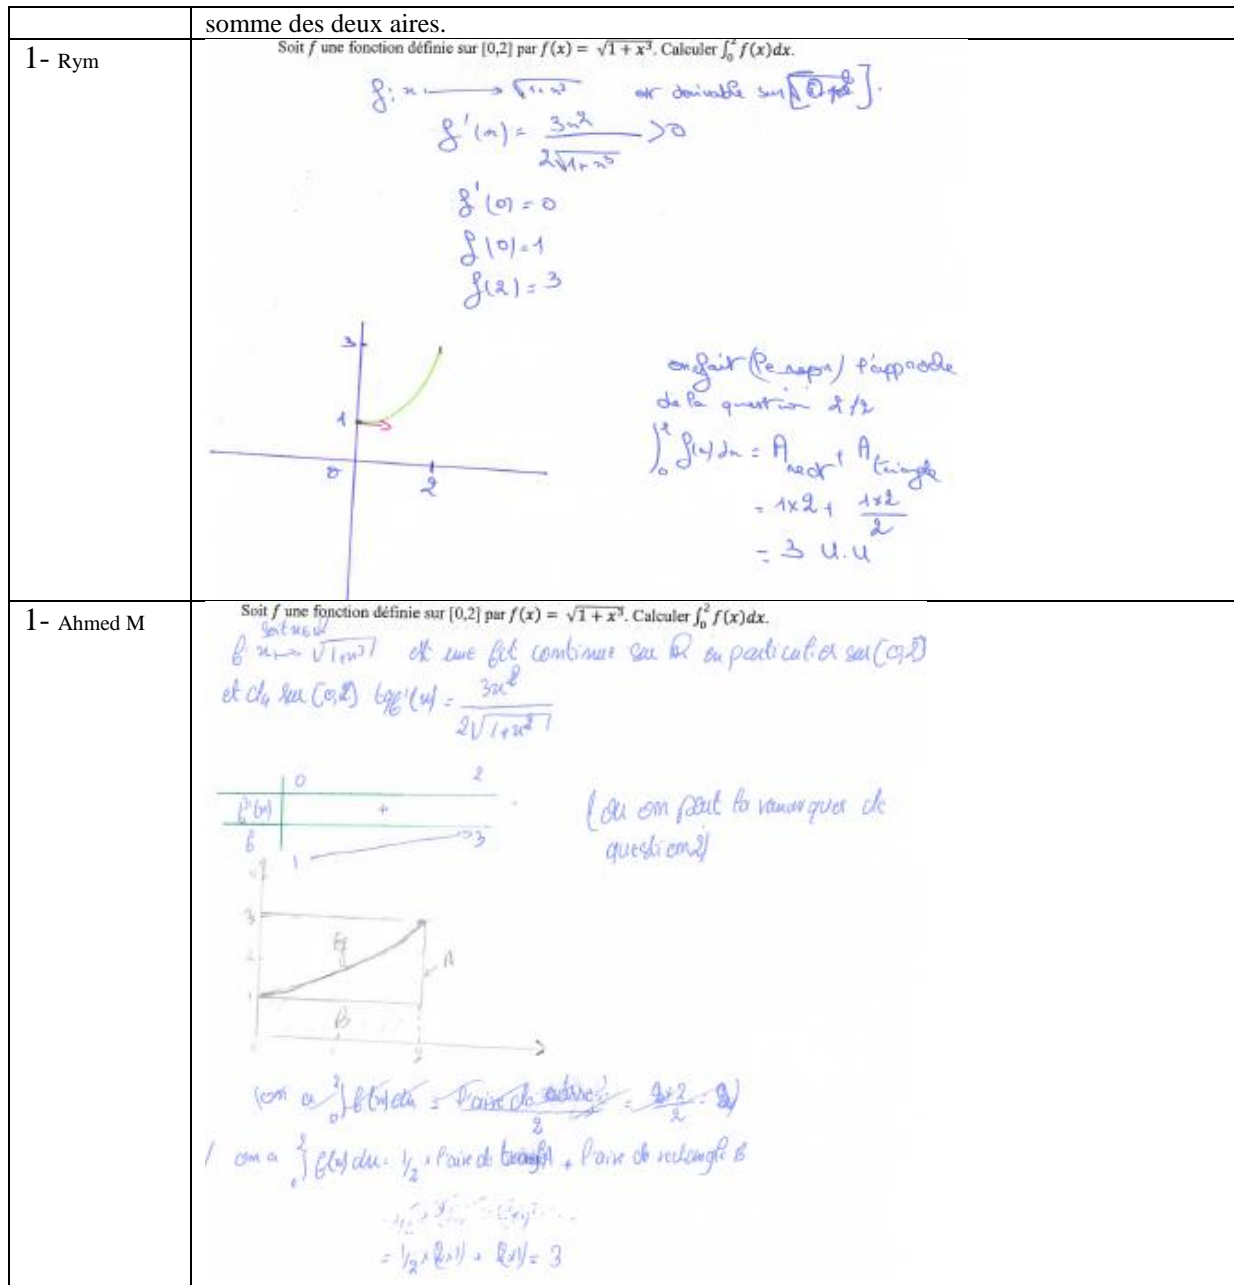 somme des deux aires.
1- Rym
Soit f une fonction définie sur [0,2] par f(x) = √1 + x³. Calculer ∫₀² f(x)dx.
f: x ⟶ √1+x³ est derivable sur
f'(x) = 3x² / 2√1+x³ > 0
f'(0) = 0
f(0) = 1
f(2) = 3
3
1
0
2
en fait l'approche
de la question 2/2
∫₀² f(x)dx = A rect + A triangle
= 1x2 + 1x2 / 2
= 3 U.U
1- Ahmed M
Soit f une fonction définie sur [0,2] par f(x) = √1 + x³. Calculer ∫₀² f(x)dx.
soit
f: x ↦ √1+x³ est une fct continue sur ℝ en particulier sur [0,2]
et sur [0,2] f'(x) = 3x² / 2√1+x²
0 2
f'(x) +
f 1 3
(ou on peut la remarquer de
question2)
3
2
1
A
B
2
(on a ∫₀² f(x)dx = l'aire de / 2 = 2x2 / 2 = 2)
on a ∫₀² f(x)dx = 1/2 x l'aire de A + l'aire de rectangle B
= 1/2 x (2x1) + (2x1) = 3